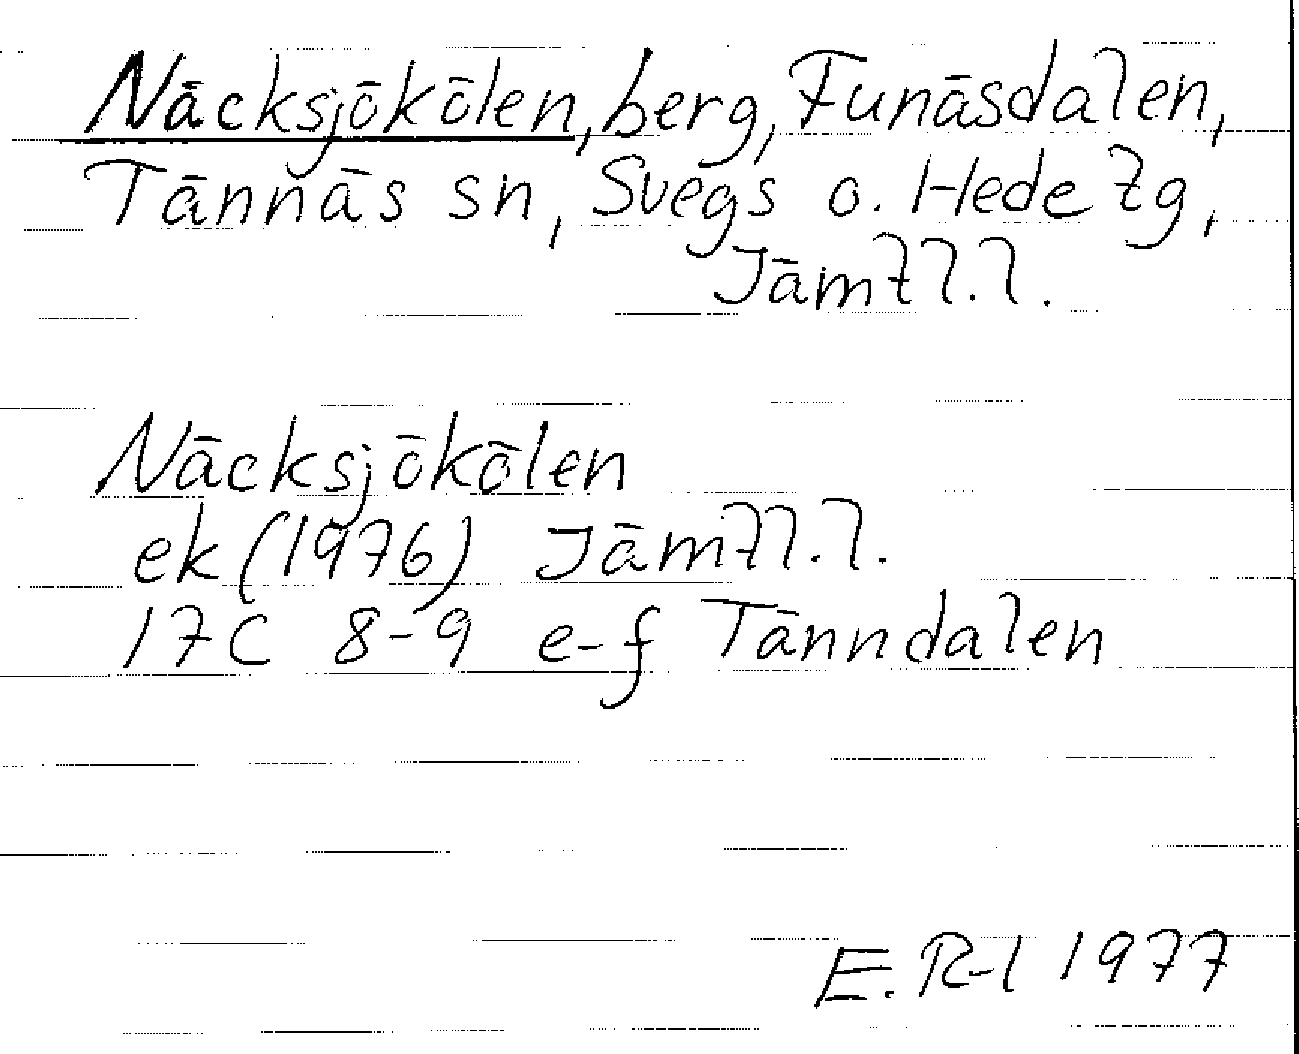 Näcksjökölen, berg, Funäsdalen,
Tännäs sn, Svegs o. Hede tg,
Jämtl.l.
Näcksjökölen
ek (1976) Jämtl.l.
17C 8-9 e-f Tänndalen
E. R-l 1977